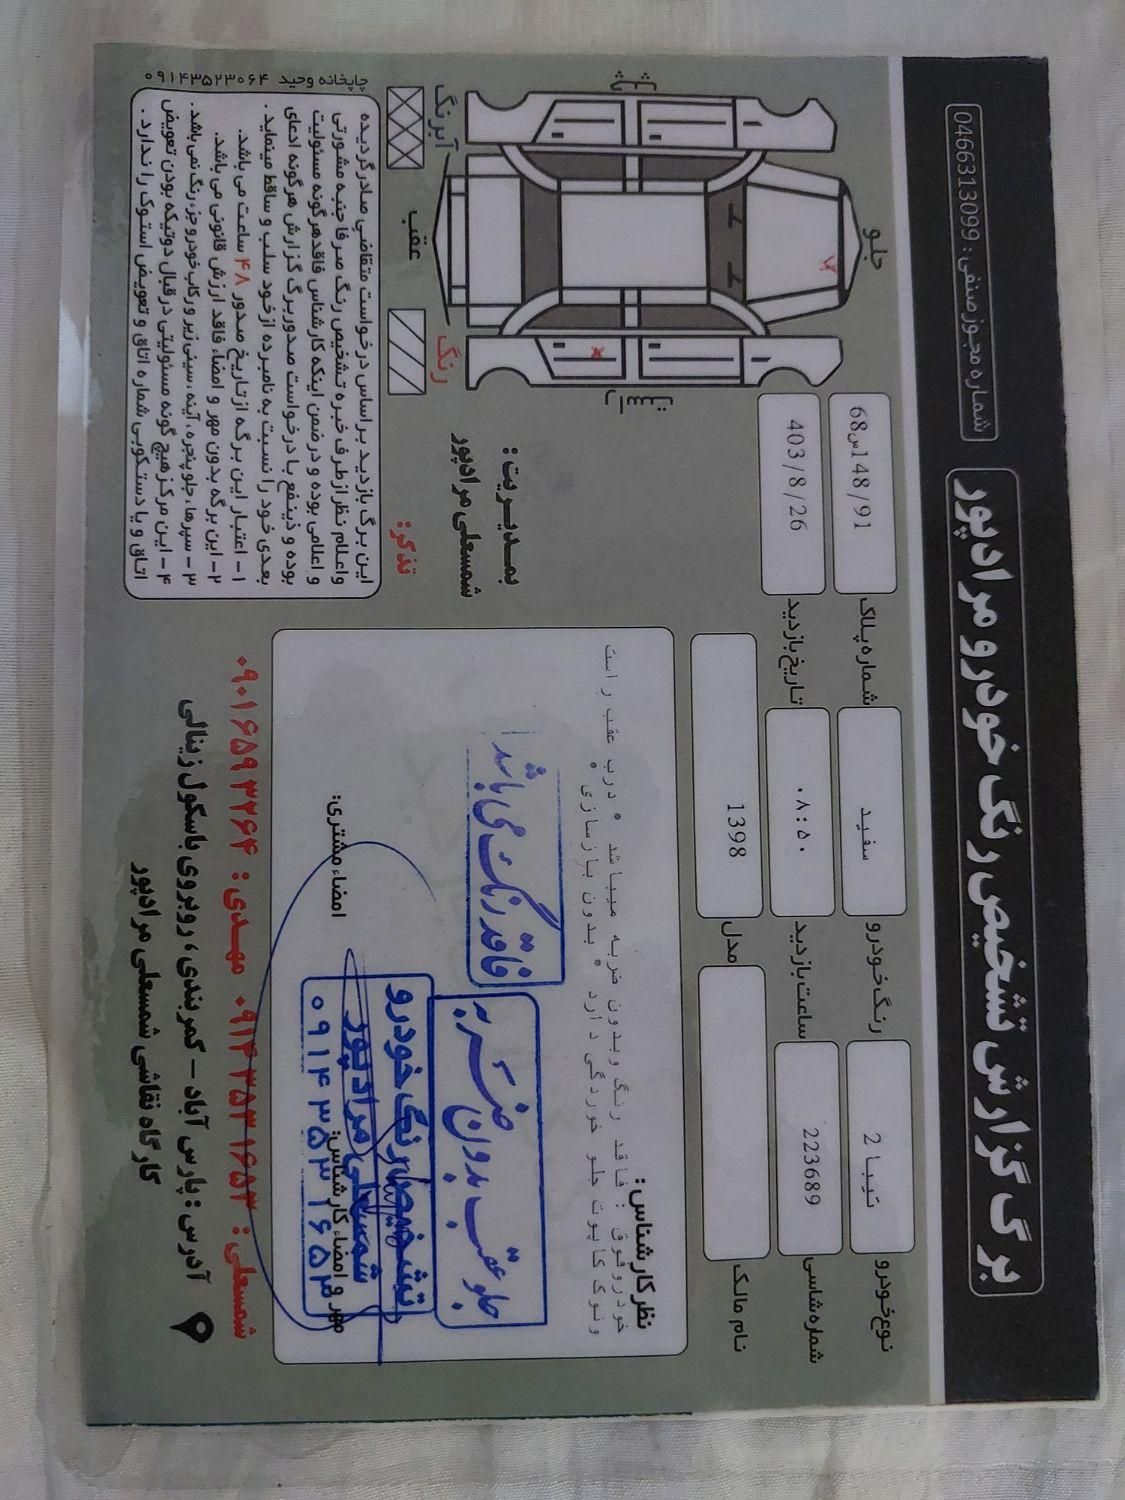 برگ گزارش تشخیص رنگ خودرو مرادپور
شماره مجوز صنفی : 0466313099
نوع خودرو
تیبا 2
رنگ خودرو
سفید
شماره پلاک
91/148س68
شماره شاسی
223689
ساعت بازدید
۰۸:۵۰
تاریخ بازدید
403/8/26
نام مالک
مدل
1398
جلو
عقب
راست
چپ
رنگ
آبرنگ
نظر کارشناس :
خودرو فوق : فاقد رنگ وبدون ضربه میباشد * درب عقب راست
ونوک کاپوت جلو خوردگی دارد * بدون بازسازی *
فاقد رنگ می باشد
جلو عقب بدون ضربه
تشخیص رنگ خودرو
شمسعلی مرادپور
۰۹۱۴۳۵۳۱۶۵۳
مهر و امضاء کارشناس:
امضاء مشتری:
بمدیریت :
شمسعلی مرادپور
تذکر:
این برگ بازدید براساس درخواست متقاضی صادر گردیده
واعلام نظر از طرف خبره تشخیص رنگ صرفا جنبه مشورتی
و اعلامی بوده و در ضمن اینکه کارشناس فاقد هرگونه مسئولیت
بوده و ذینفع با درخواست صدور برگ گزارش هرگونه ادعای
بعدی خود را نسبت به نامبرده از خود سلب و ساقط مینماید.
۱- اعتبار این برگه از تاریخ صدور ۴۸ ساعت می باشد.
۲- این برگه بدون مهر و امضاء فاقد ارزش قانونی می باشد.
۳- سپرها، جلو پنجره، آینه، سینی زیر و رکاب خودرو جزء رنگ نمی باشد.
۴- این مرکز هیچ گونه مسئولیتی در قبال دوتیکه بودن تعویض
اتاق و یا دستکوبی شماره اتاق و تعویض استوک را ندارد.
چاپخانه وحید ۰۹۱۴۳۵۲۳۰۶۴
شمسعلی : ۰۹۱۴۳۵۳۱۶۵۳ مهدی : ۰۹۰۱۶۵۹۳۲۶۴
آدرس : پارس آباد - کمربندی ، روبروی باسکول زینالی
کارگاه نقاشی شمسعلی مرادپور